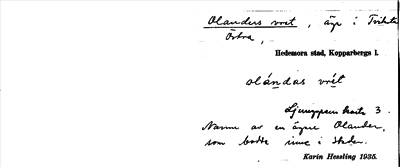 Olanders vret, äga i Tviksta
Östra,
Hedemora stad, Kopparbergs l.
olándas vrét
Ljunggrens karta 3.
Namn av en ägare Olander,
som bodde inne i staden.
Karin Hessling 1935.